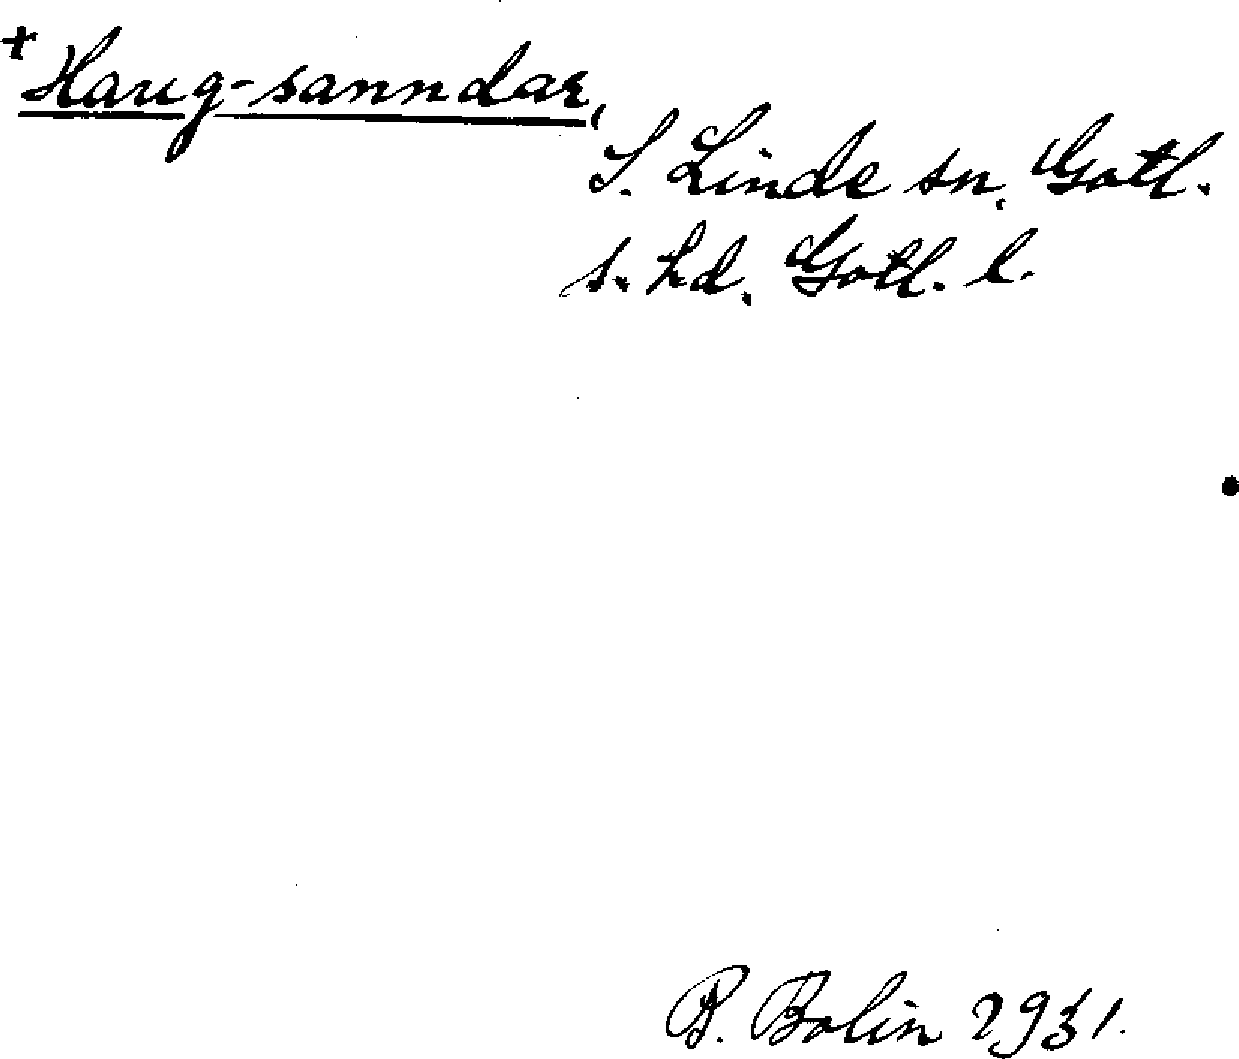 + Haug-sanndar,
S. Linde sn, Gotl.
s. hd, Gotl. l.
B. Bolin 1931.